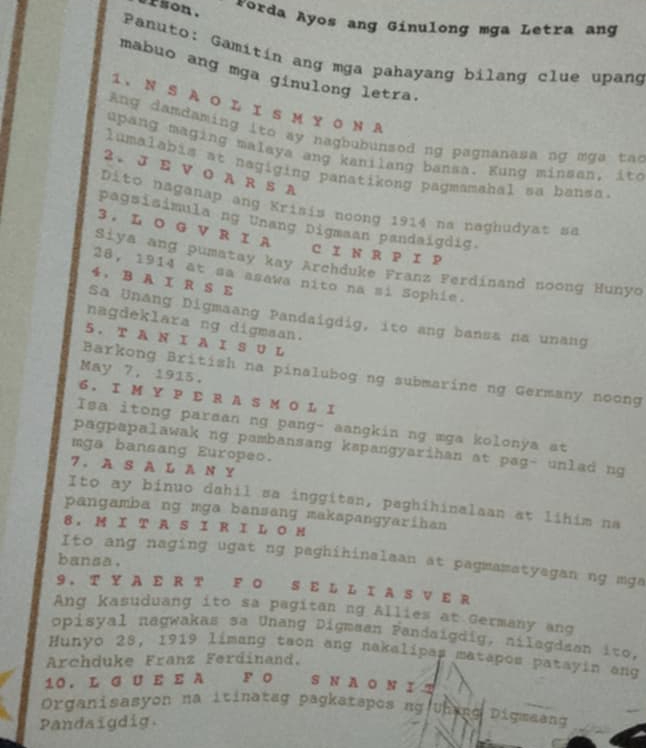 Forda Ayos ang Ginulong mga Letra ang
Panuto: Gamitin ang mga pahayang bilang clue upang
mabuo ang mga ginulong letra.
1. N S A O L I S M Y O N A
Ang damdaming ito ay nagbubunsod ng pagnanasa ng mga tao
upang maging malaya ang kanilang bansa. Kung minsan, ito
lumalabis at nagiging panatikong pagmamahal sa bansa.
2. J E V O A R S A
Dito naganap ang Krisis noong 1914 na naghudyat sa
pagsisimula ng Unang Digmaan pandaigdig.
3. L O G V R I A C I N R P I P
Siya ang pumatay kay Archduke Franz Ferdinand noong Hunyo
28, 1914 at sa asawa nito na si Sophie.
4. B A I R S E
Sa Unang Digmaang Pandaigdig, ito ang bansa na unang
nagdeklara ng digmaan.
5. T A N I A I S U L
Barkong British na pinalubog ng submarine ng Germany noong
May 7, 1915.
6. I M Y P E R A S M O L I
Isa itong paraan ng pang- aangkin ng mga kolonya at
pagpapalawak ng pambansang kapangyarihan at pag- unlad ng
mga bansang Europeo.
7. A S A L A N Y
Ito ay binuo dahil sa inggitan, paghihinalaan at lihim na
pangamba ng mga bansang makapangyarihan
8. M I T A S I R I L O M
Ito ang naging ugat ng paghihinalaan at pagmamatyagan ng mga
bansa.
9. T Y A E R T F O S E L L I A S V E R
Ang kasuduang ito sa pagitan ng Allies at Germany ang
opisyal nagwakas sa Unang Digmaan Pandaigdig, nilagdaan ito,
Hunyo 28, 1919 limang taon ang nakalipas matapos patayin ang
Archduke Franz Ferdinand.
10. L G U E E A F O S N A O N I T
Organisasyon na itinatag pagkatapos ng Unang Digmaang
Pandaigdig.